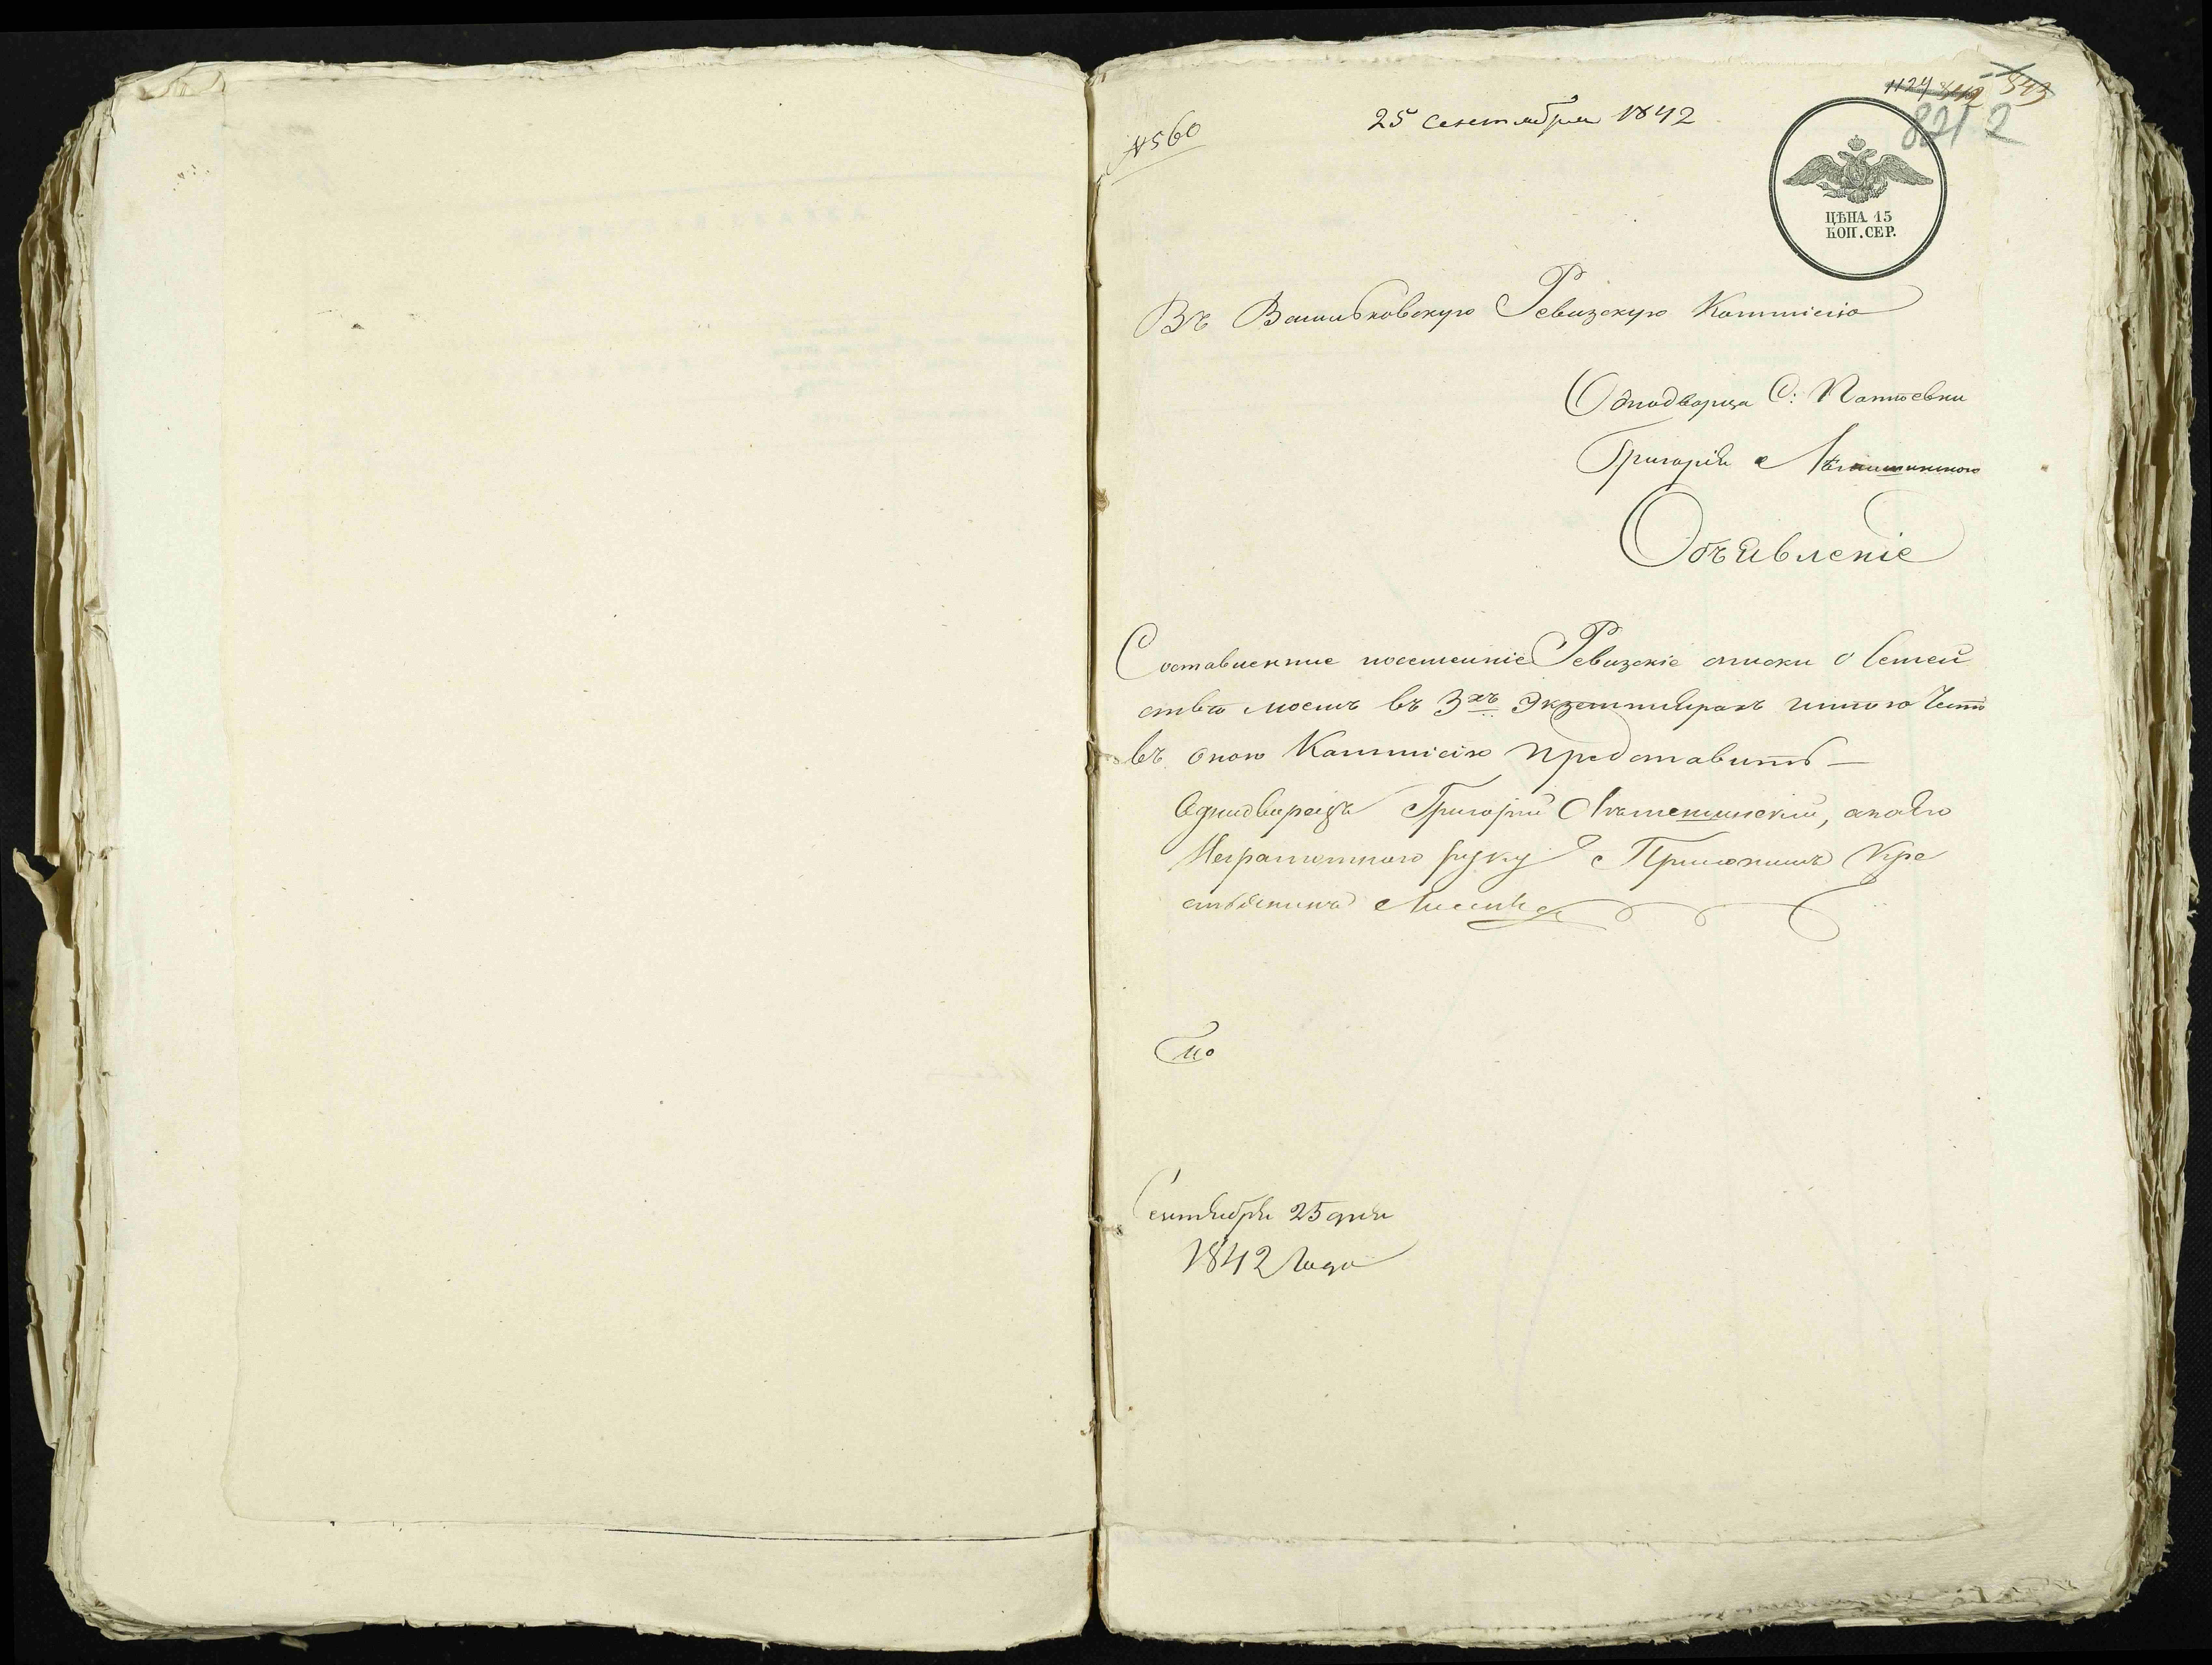 25 Сентября 1842
№ 560
1124 842 843
821 2
ЦѢНА 15
КОП. СЕР.
Въ Васильковскую Ревизскую Коммисію
Однодворца С:
Григорія
Объявленіе
Составленные посемейніе Ревизскіе списки о Семей
ствѣ моемъ въ 3хъ Экземплярахъ имѣю Честь
въ оною Коммисію представить —
Однодворецъ Григорій а за его
Неграмотного руку Приложилъ Кре
стьянинъ
Сентября 25 дня
1842 Года